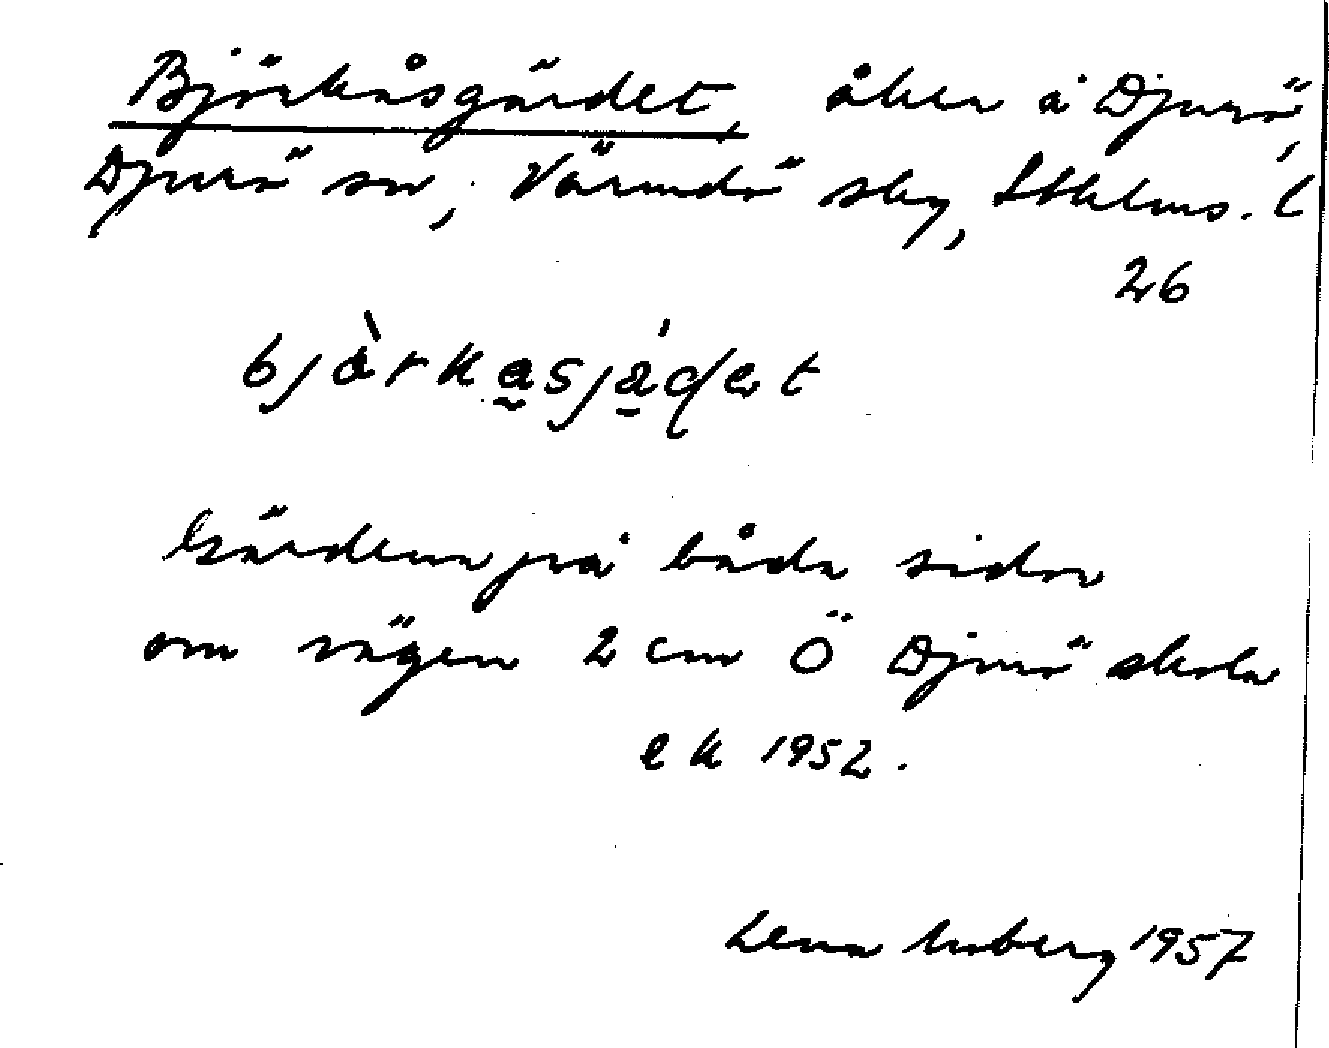 Björkåsgärdet, åker å Djurö,
Djurö sn, Värmdö skg, Sthlms. l
26
bjàrkasjádet
Gärdena på båda sidor
om vägen 2 cm Ö Djurö skola
e k 1952.
Lena Moberg 1957